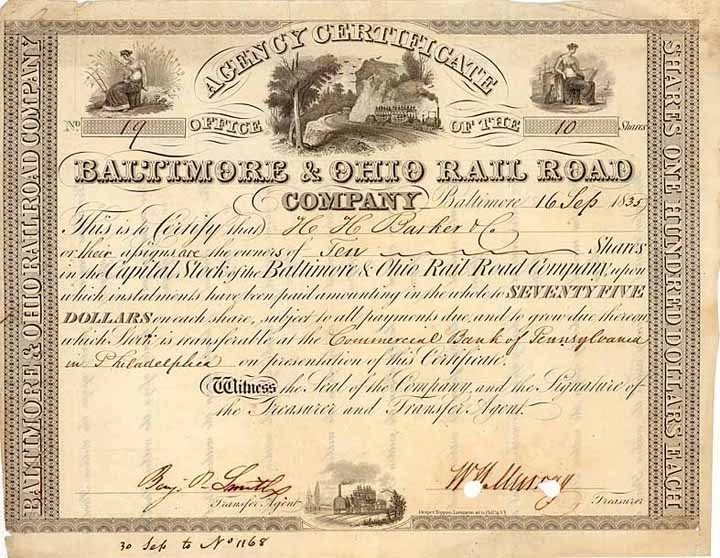 AGENCY CERTIFICATE
No 19 OFFICE OF THE 10 Shares
BALTIMORE & OHIO RAIL ROAD
COMPANY Baltimore 16 Sep 1835
This is to Certify that H H Barker & Co
or their assigns are the owners of Ten Shares
in the Capital Stock of the Baltimore & Ohio Rail Road Company, upon
which instalments have been paid amounting in the whole to SEVENTY FIVE
DOLLARS on each share, subject to all payments due, and to grow due thereon,
which Stock is transferable at the Commercial Bank of Pennsylvania
in Philadelphia on presentation of this Certificate.
Witness the Seal of the Company, and the Signature of
the Treasurer and Transfer Agent.
Benj. Smith
Transfer Agent
Treasurer
30 Sep to No 1168
BALTIMORE & OHIO RAIL ROAD COMPANY
SHARES ONE HUNDRED DOLLARS EACH